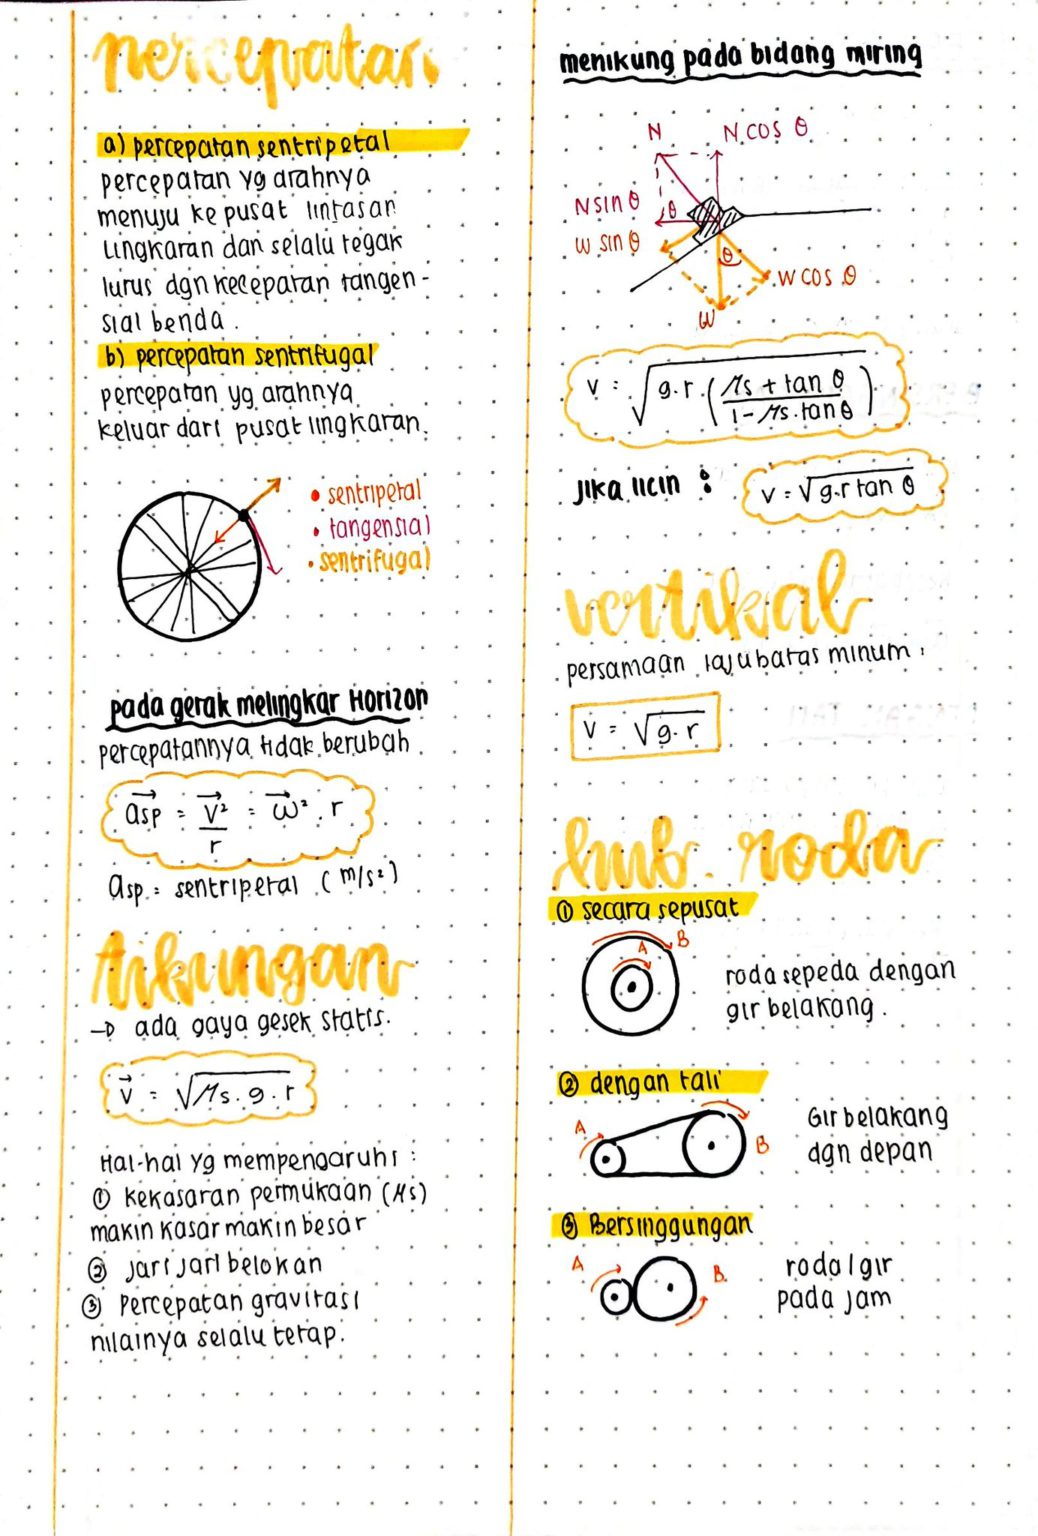 percepatan
a) percepatan sentripetal
percepatan yg arahnya
menuju ke pusat lintasan
lingkaran dan selalu tegak
lurus dgn kecepatan tangen-
sial benda.
b) percepatan sentrifugal
percepatan yg arahnya
keluar dari pusat lingkaran.
• sentripetal
• tangensial
• sentrifugal
pada gerak melingkar Horizon
percepatannya tidak berubah
asp = v² / r = ω² . r
asp = sentripetal (m/s²)
tikungan
→ ada gaya gesek statis.
v = √μs . g . r
Hal-hal yg mempengaruhi :
① kekasaran permukaan (μs)
makin kasar makin besar
② jari jari belokan
③ Percepatan gravitasi
nilainya selalu tetap.
menikung pada bidang miring
N
N cos θ
N sin θ
θ
W sin θ
θ
W cos θ
W
v = √g.r.(μs + tan θ / 1 - μs.tan θ)
Jika licin :
v = √g.r tan θ
vertikal
persamaan laju batas minum :
v = √g.r
hub. roda
① secara sepusat
A
B
roda sepeda dengan
gir belakang.
② dengan tali
A
B
Gir belakang
dgn depan
③ Bersinggungan
A
B
roda/gir
pada jam